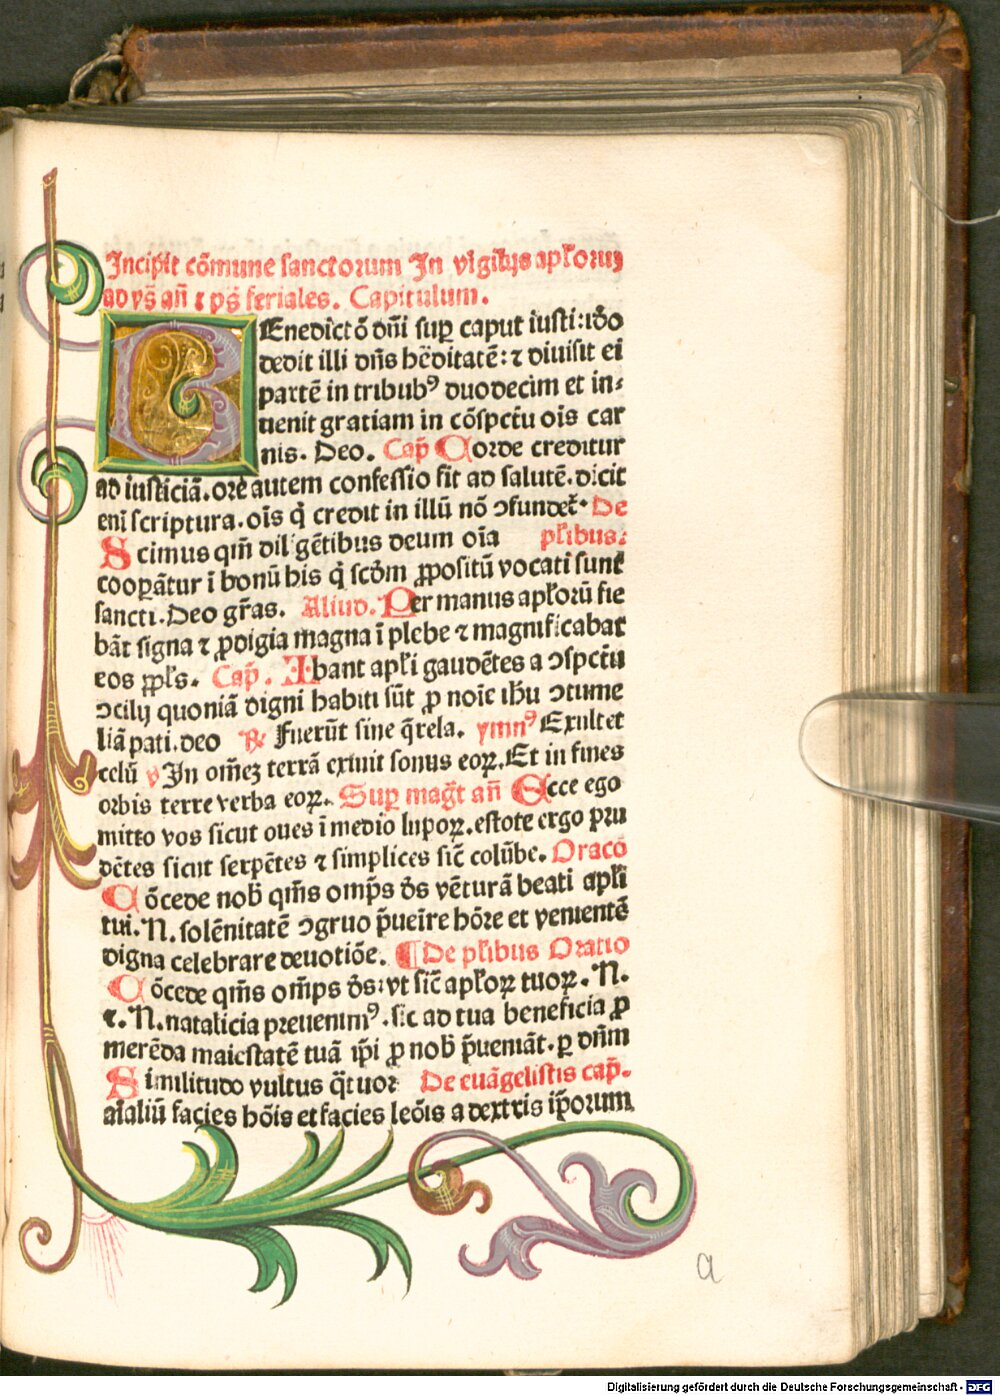 Incipit cõmune sanctorum In vigilijs apl'oruȝ
ad vs̃ añ ⁊ ps̃ feriales. Capitulum.
BEnedict õ dñi suꝑ caput iusti: iõo
dedit illi dñs hẽditatẽ: ⁊ diuisit ei
partẽ in tribubꝰ duodecim et in-
uenit gratiam in cõspctu ois car
nis. Deo. Cap̃ Corde creditur
ad iusticiã. ore autem confessio fit ad salutẽ. dicit
eni scriptura. ois q̇ credit in illũ nõ ↄfundet᷒. De
Scimus qm̃ diligẽtibus deum oĩa pl'ibus:
cooꝑãtur ĩ bonũ his q̇ scd̃m ꝓpositũ vocati sunt
sancti. Deo gr̃as. Aliud. Per manus apl'orũ fie
bãt signa ⁊ ꝓdigia magna ĩ plebe ⁊ magnificabat
eos ꝓpl's. Cap̃. Ibant apl'i gaudẽtes a ↄspctu
ↄcilij quoniã digni habiti sũt ꝓ noĩe ihu ↄtume
liã pati. deo ℟ Fuerũt sine q̃rela. ymnꝰ Exultet
celũ ℣ In om̃eȝ terrã exiuit sonus eoꝝ. Et in fines
orbis terre verba eoꝝ. Suꝑ mag̃t añ Ecce ego
mitto vos sicut oues ĩ medio lupoꝝ. estote ergo pru
dẽtes sicut serpẽtes ⁊ simplices sic̃ colũbe. Oracõ
Cõcede nob̃ qm̃s omp̃s ds̃ vẽturã beati apl'i
tui. N. solẽnitatẽ ↄgruo p̃ueĩre hõre et venientẽ
digna celebrare deuotiõe. ¶ De pl'ibus Oratio
Cõcede qm̃s om̃ps ds̃: vt sic̃ apl'oꝝ tuoꝝ. N.
⁊. N. natalicia preuenimꝰ. sic ad tua beneficia ꝓ
merẽda maiestatẽ tuã ip̃i ꝓ nob̃ p̃ueniãt. ꝑ dñm
Similitudo vultus q̃tuor De euãgelistis cap̃.
aĩaliũ facies hõis et facies leõis a dextris ip̃orum
a
Digitalisierung gefördert durch die Deutsche Forschungsgemeinschaft - DFG